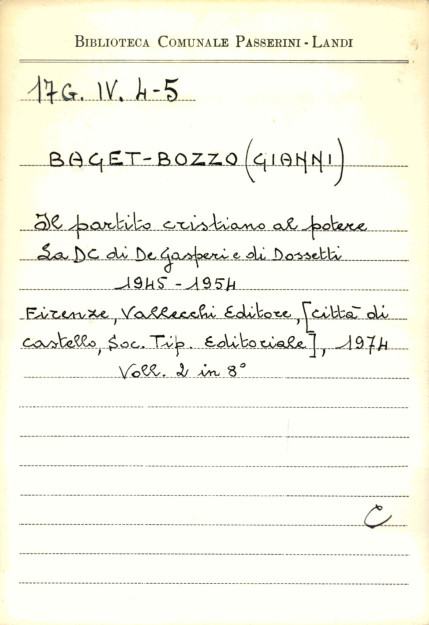 BIBLIOTECA COMUNALE PASSERINI - LANDI
17G. IV. 4-5
BAGET-BOZZO (GIANNI)
Il partito cristiano al potere
La DC di De Gasperi e di Dossetti
1945 - 1954
Firenze, Vallecchi Editore, [città di
castello, Soc. Tip. Editoriale], 1974
Voll. 2 in 8°
C